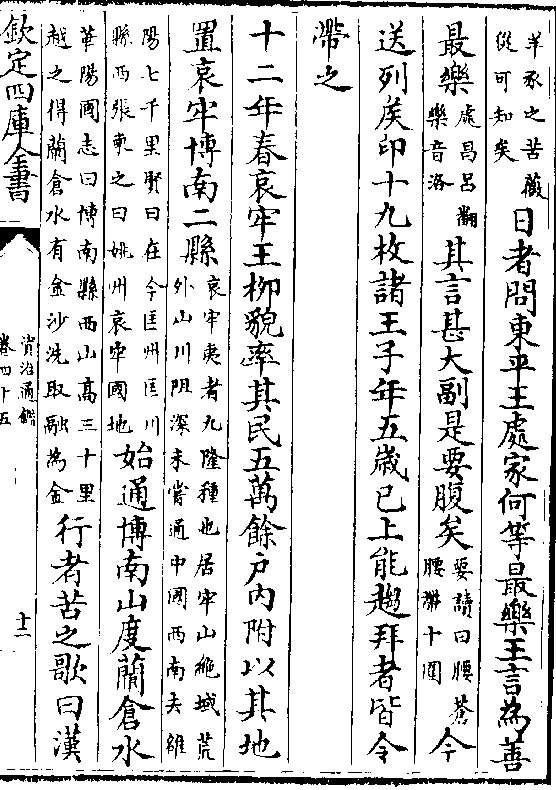 羊豕之苦薇
從可知矣
日者問東平王處家何等最樂王言為善
最樂
處昌呂翻
樂音洛
其言甚大副是要腹矣
要讀曰腰蒼
腰帶十圍
今
送列侯印十九枚諸王子年五歲已上能趨拜者皆令
帶之
十二年春哀牢王柳貌率其民五萬餘戶內附以其地
置哀牢博南二縣
哀牢夷者九隆種也居牢山絶域荒
外山川阻深未嘗通中國西南去雒
陽七千里賢曰在今匡州匡川
縣西張柬之曰姚州哀牢國地
始通博南山度蘭倉水
華陽國志曰博南縣西山高三十里
越之得蘭倉水有金沙洗取融為金
行者苦之歌曰漢
欽定四庫全書
資治通鑑
卷四十五
十二